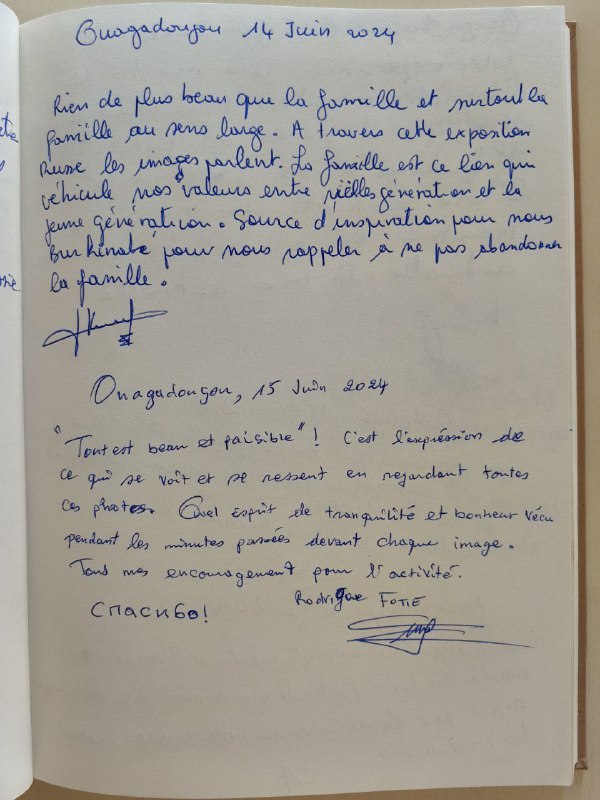 Ouagadougou 14 Juin 2024
Rien de plus beau que la famille et surtout la
famille au sens large. A travers cette exposition
Russe les images parlent. La famille est ce lien qui
véhicule nos valeurs entre vieilles génération et la
jeune génération. Source d'inspiration pour nous
Burkinabè pour nous rappeler à ne pas abandonner
la famille.
Ouagadougou, 15 Juin 2024
"Tout est beau et paisible"! C'est l'expression de
ce qui se voit et se ressent en regardant toutes
ces photos. Quel esprit de tranquilité et bonheur vécu
pendant les minutes passées devant chaque image.
Tous mes encouragement pour l'activité.
Спасибо!
Rodrigue FOTIE